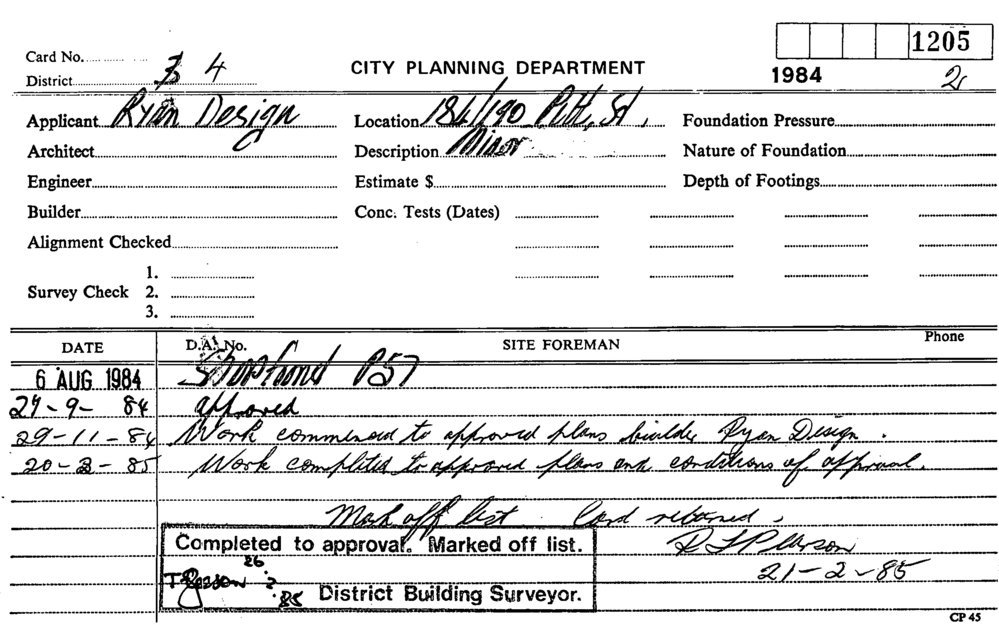 Card No.
1205
CITY PLANNING DEPARTMENT
4
District
1984
2
Applicant Ryan Design
Location 186/190 Pitt St.
Foundation Pressure
Architect
Description Minor
Nature of Foundation
Engineer
Estimate $
Depth of Footings
Builder
Conc. Tests (Dates)
Alignment Checked
1.
Survey Check 2.
3.
DATE
D.A. No.
SITE FOREMAN
Phone
6 AUG 1984 Shopfront P57
27-9-84 approved
29-11-84 Work commenced to approved plans builder Ryan Design.
20-2-85 Work completed to approved plans and conditions of approval.
Mark off list. Card returned.
Completed to approval. Marked off list.
R J Pearson
26.2.85
21-2-85
District Building Surveyor.
CP 45